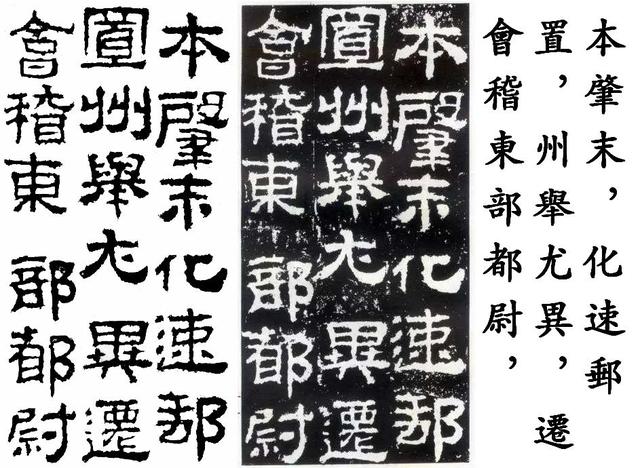 本肇末，化速郵
置，州舉尤異，遷
會稽東部都尉，
本肇末化速郵
置州舉尤異遷
會稽東部都尉
本肇末化速郵
置州舉尤異遷
會稽東部都尉